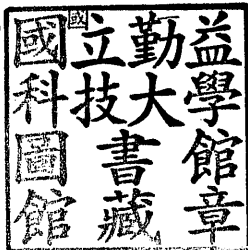 益學館章
勤大書藏
立技
國科圖館
或